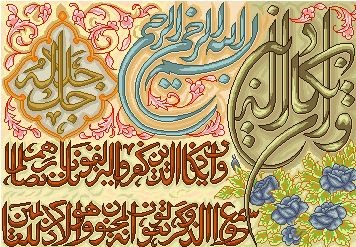 بسم الله الرحمن الرحيم
جل جلاله
وان يكاد
وان يكاد الذين كفروا ليزلقونك بابصارهم لما
سمعوا الذكر ويقولون انه لمجنون وما هو الا ذكر للعالمين